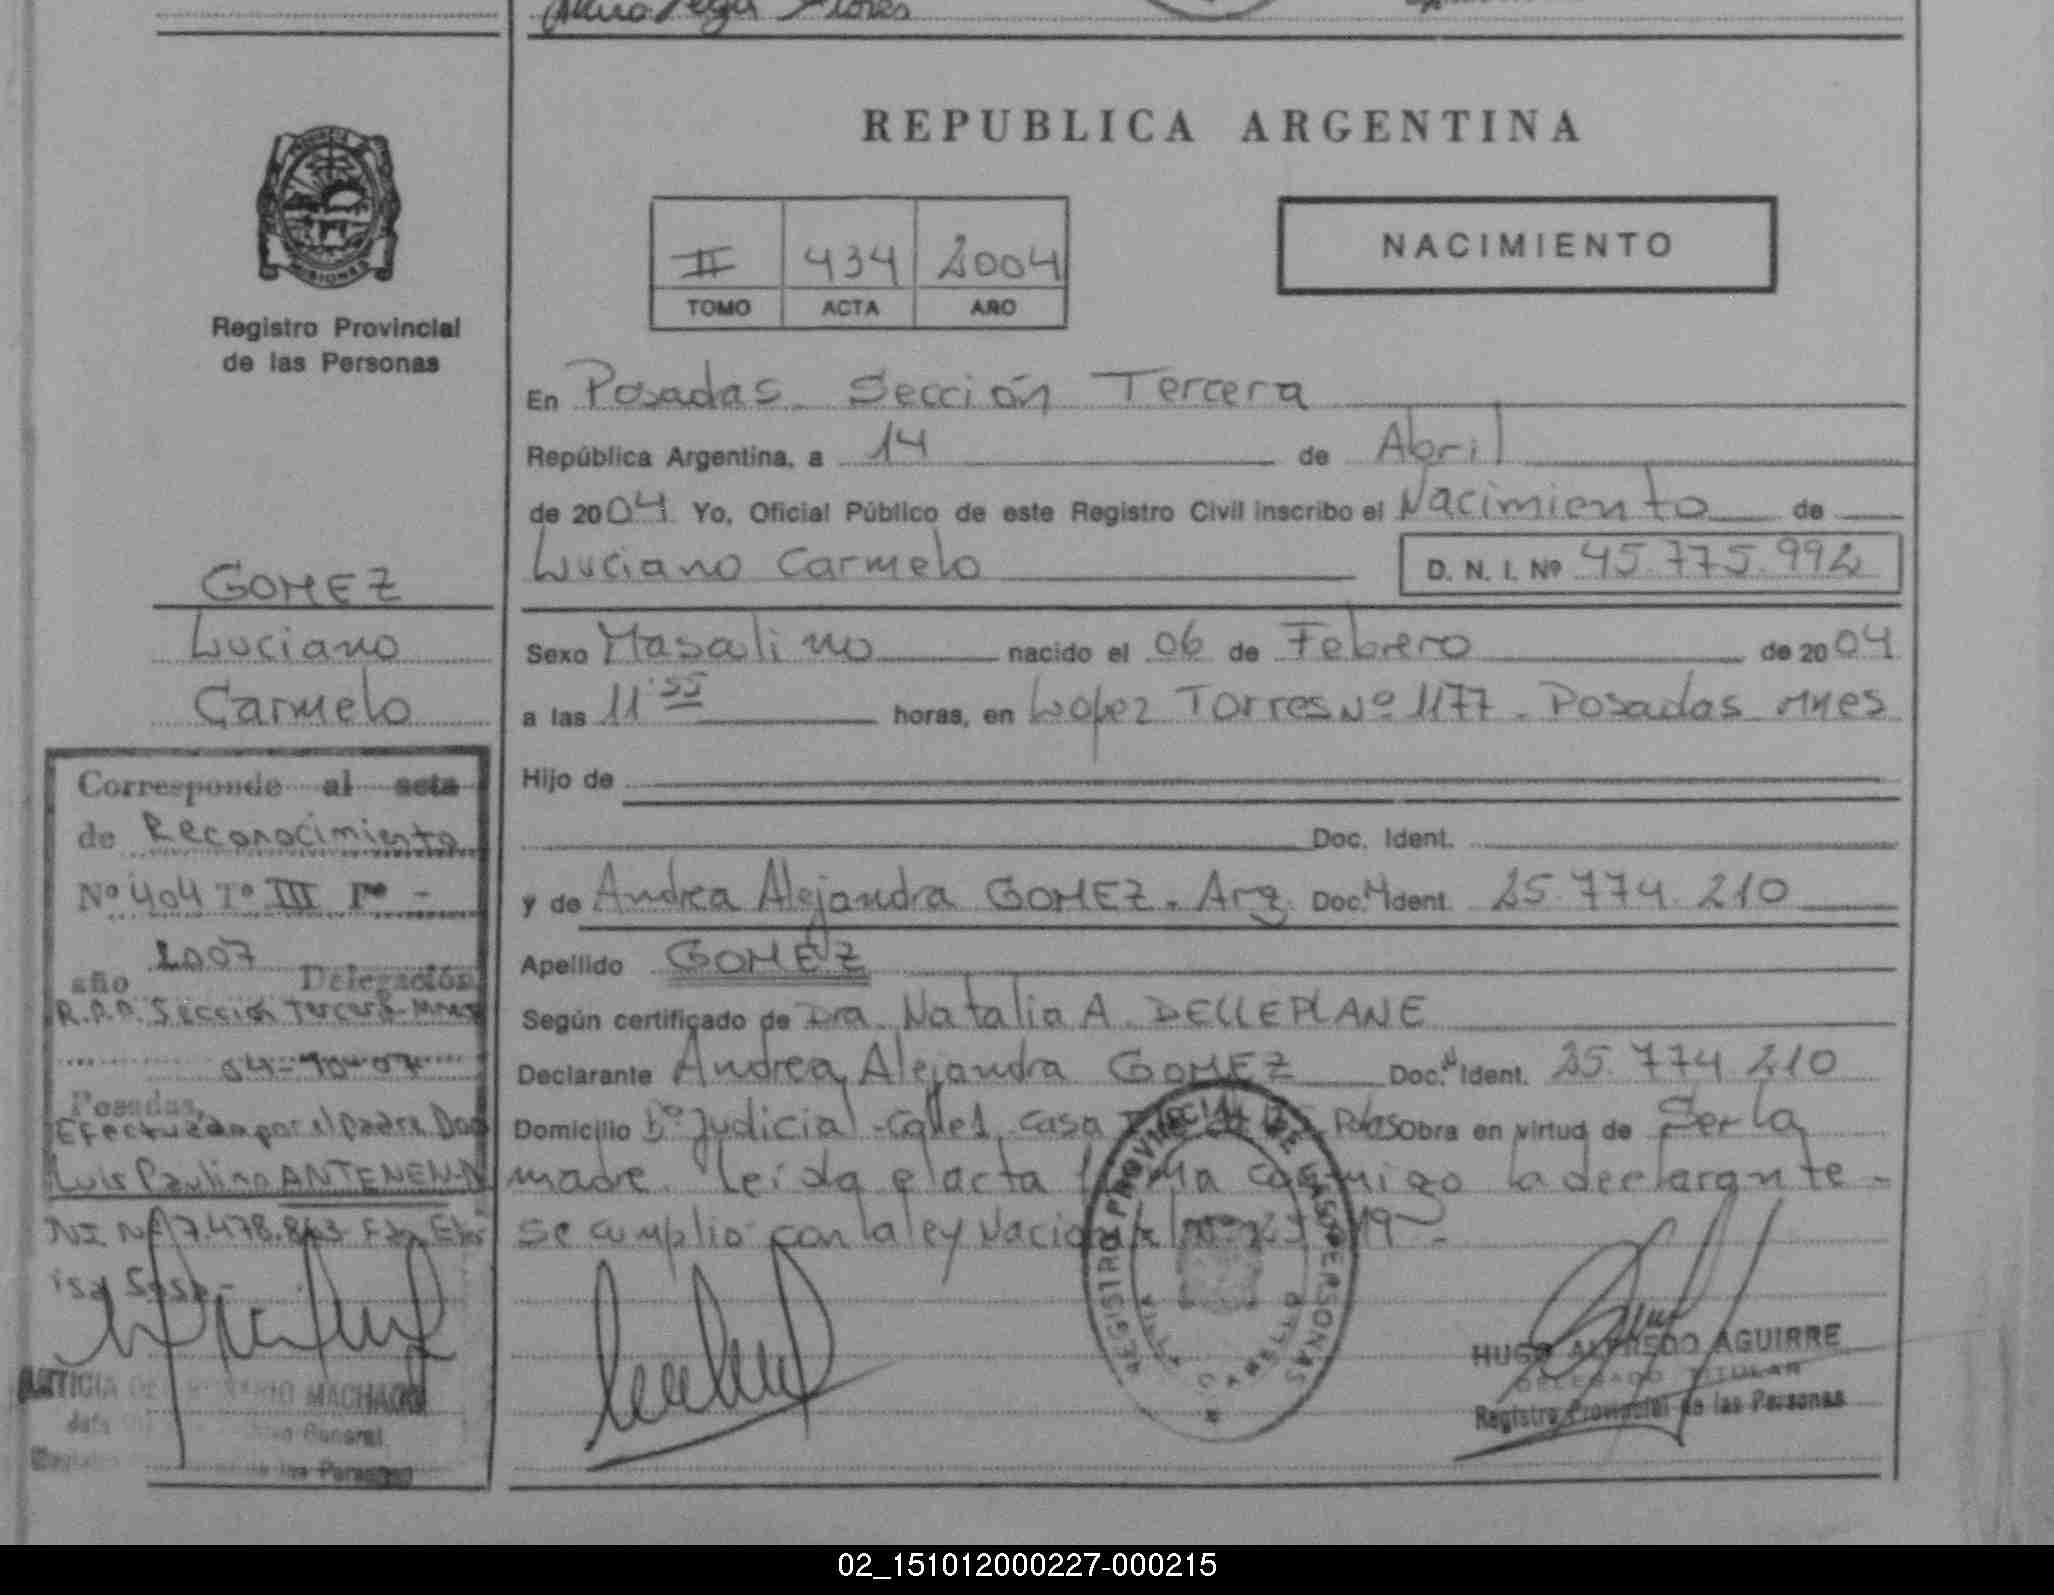 REPUBLICA ARGENTINA
NACIMIENTO
II 434 2004
TOMO ACTA AÑO
MISIONES
Registro Provincial
de las Personas
En Posadas. Sección Tercera
República Argentina, a 14 de Abril
de 2004 Yo, Oficial Público de este Registro Civil inscribo el Nacimiento de
Luciano Carmelo D. N. I. Nº 45.775.992
Sexo Masculino nacido el 06 de Febrero de 2004
a las 11:55 horas, en Lopez Torres Nº 1177. Posadas Mnes
Hijo de
Doc. Ident.
y de Andrea Alejandra GOMEZ. Arg. Doc. Ident. 25.774.210
Apellido GOMEZ
Según certificado de Dra. Natalia A. DELLEPLANE
Declarante Andrea Alejandra GOMEZ Doc. Ident. 25.774 210
Domicilio Bº Judicial - calle 1, casa Obra en virtud de Ser la
madre. Leída el acta la declarante -
se cumplio con la ley Nacional
REGISTRO PROVINCIAL DE LAS PERSONAS
HUGO ALFREDO AGUIRRE
DELEGADO TITULAR
Registro Provincial de las Personas
GOMEZ
Luciano
Carmelo
Corresponde al acta
de Reconocimiento
Nº 404 Tº III Fº -
año 2007 Delegación
R.P.P. Sección Tercera - Mnes
04-10-07
Posadas,
Efectuada por el padre Don
Luis Paulino ANTENEN-D
NI Nº 17.478.863
MACHADO
General
de las Personas
02_151012000227-000215